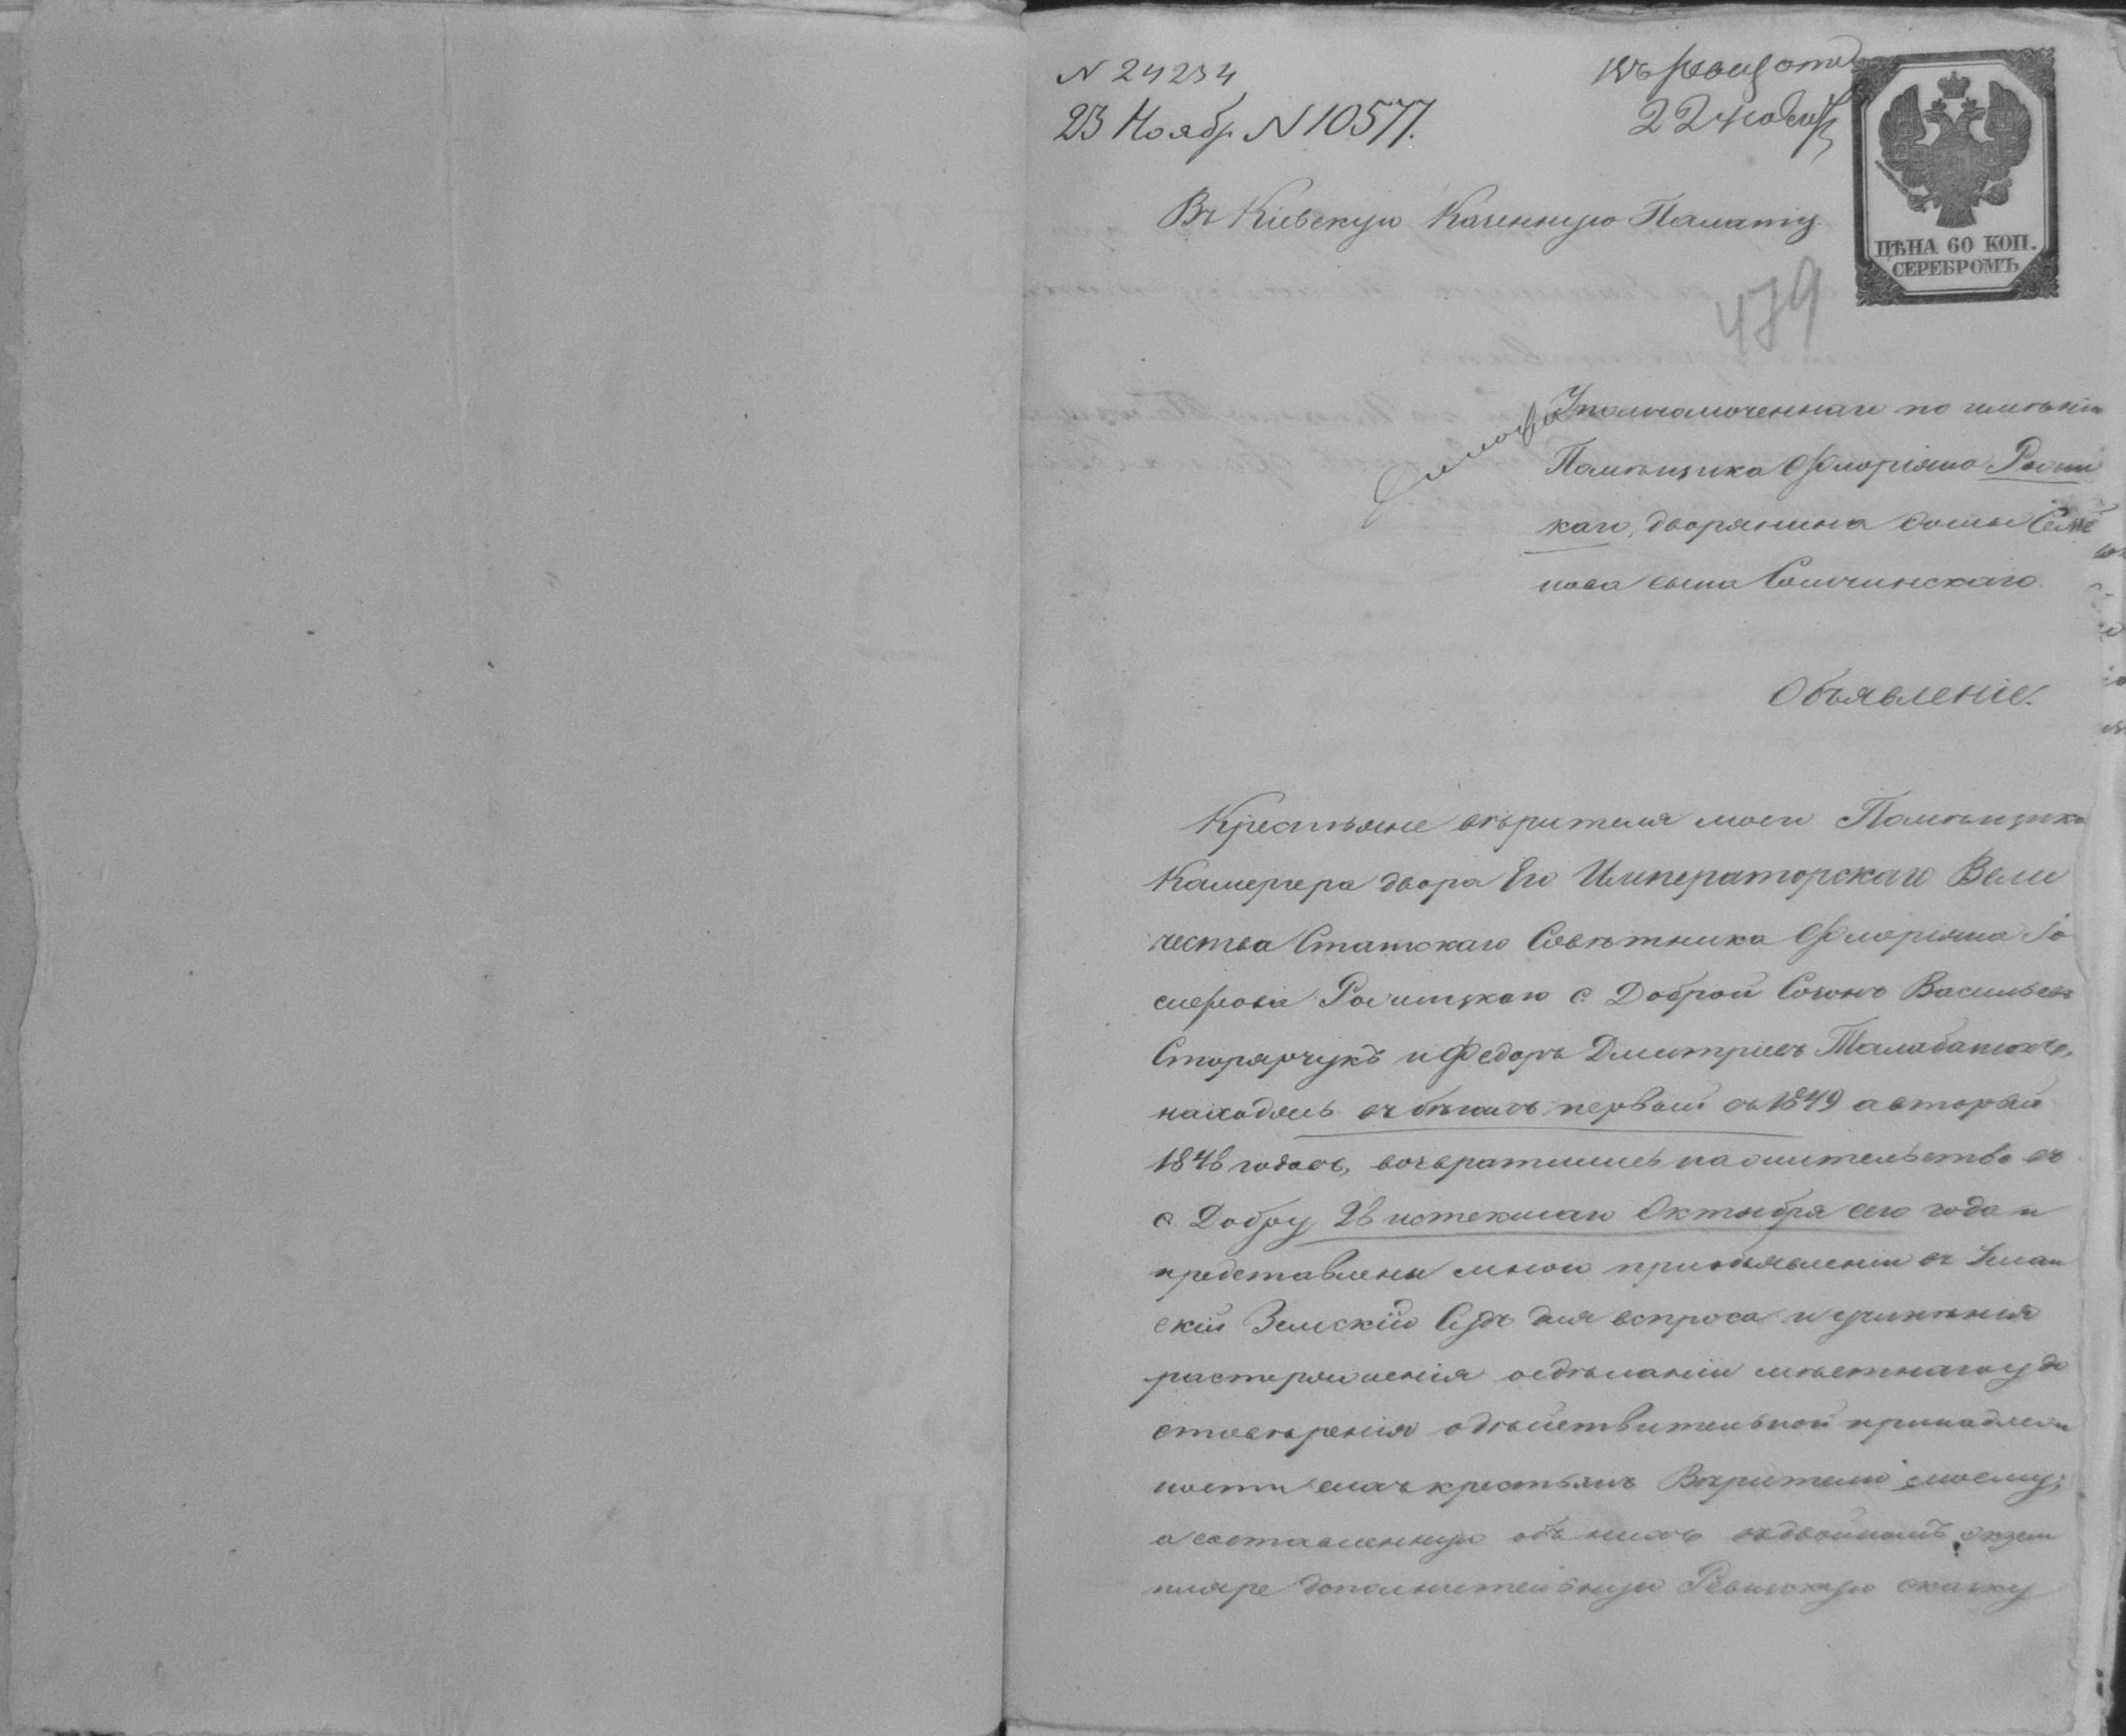 N 24234
23 Ноябр N 10577.
22 ноября
ЦѢНА 60 КОП.
СЕРЕБРОМЪ
Въ Кіевскую Казенную Палату
479
Уполномоченнаго по имѣнію
Помѣщика Флоріяна Росиш
каго, дворянина Фомы Семе
нова сына Сомчинскаго.
Объявленіе.
Крестьяне вѣрителя моего Помѣщика
Камергера двора Его Императорскаго Вели
чества Статскаго Совѣтника Флоріяна Іо
сифова Росишкаго с. Доброй Созонъ Васильевъ
Сторярчукъ и Федоръ Дмитріевъ Талабанюкъ,
находясь въ бѣгахъ первый съ 1849 а вторый
1848 годовъ, возвратились на жительство въ
с. Добру 26 истекшаго Октября сего года и
представлены мною при объявленіи въ Уман
скій Земскій Судъ для вспроса и учиненія
распоряженія о сдѣланіи мѣстнаго удо
стовѣренія о дѣйствительной принадлеж
ности сихъ крестьянъ Вѣрителю моему;
а составленную объ нихъ въ двойномъ экзем
пляре дополнительную Ревизскую сказку